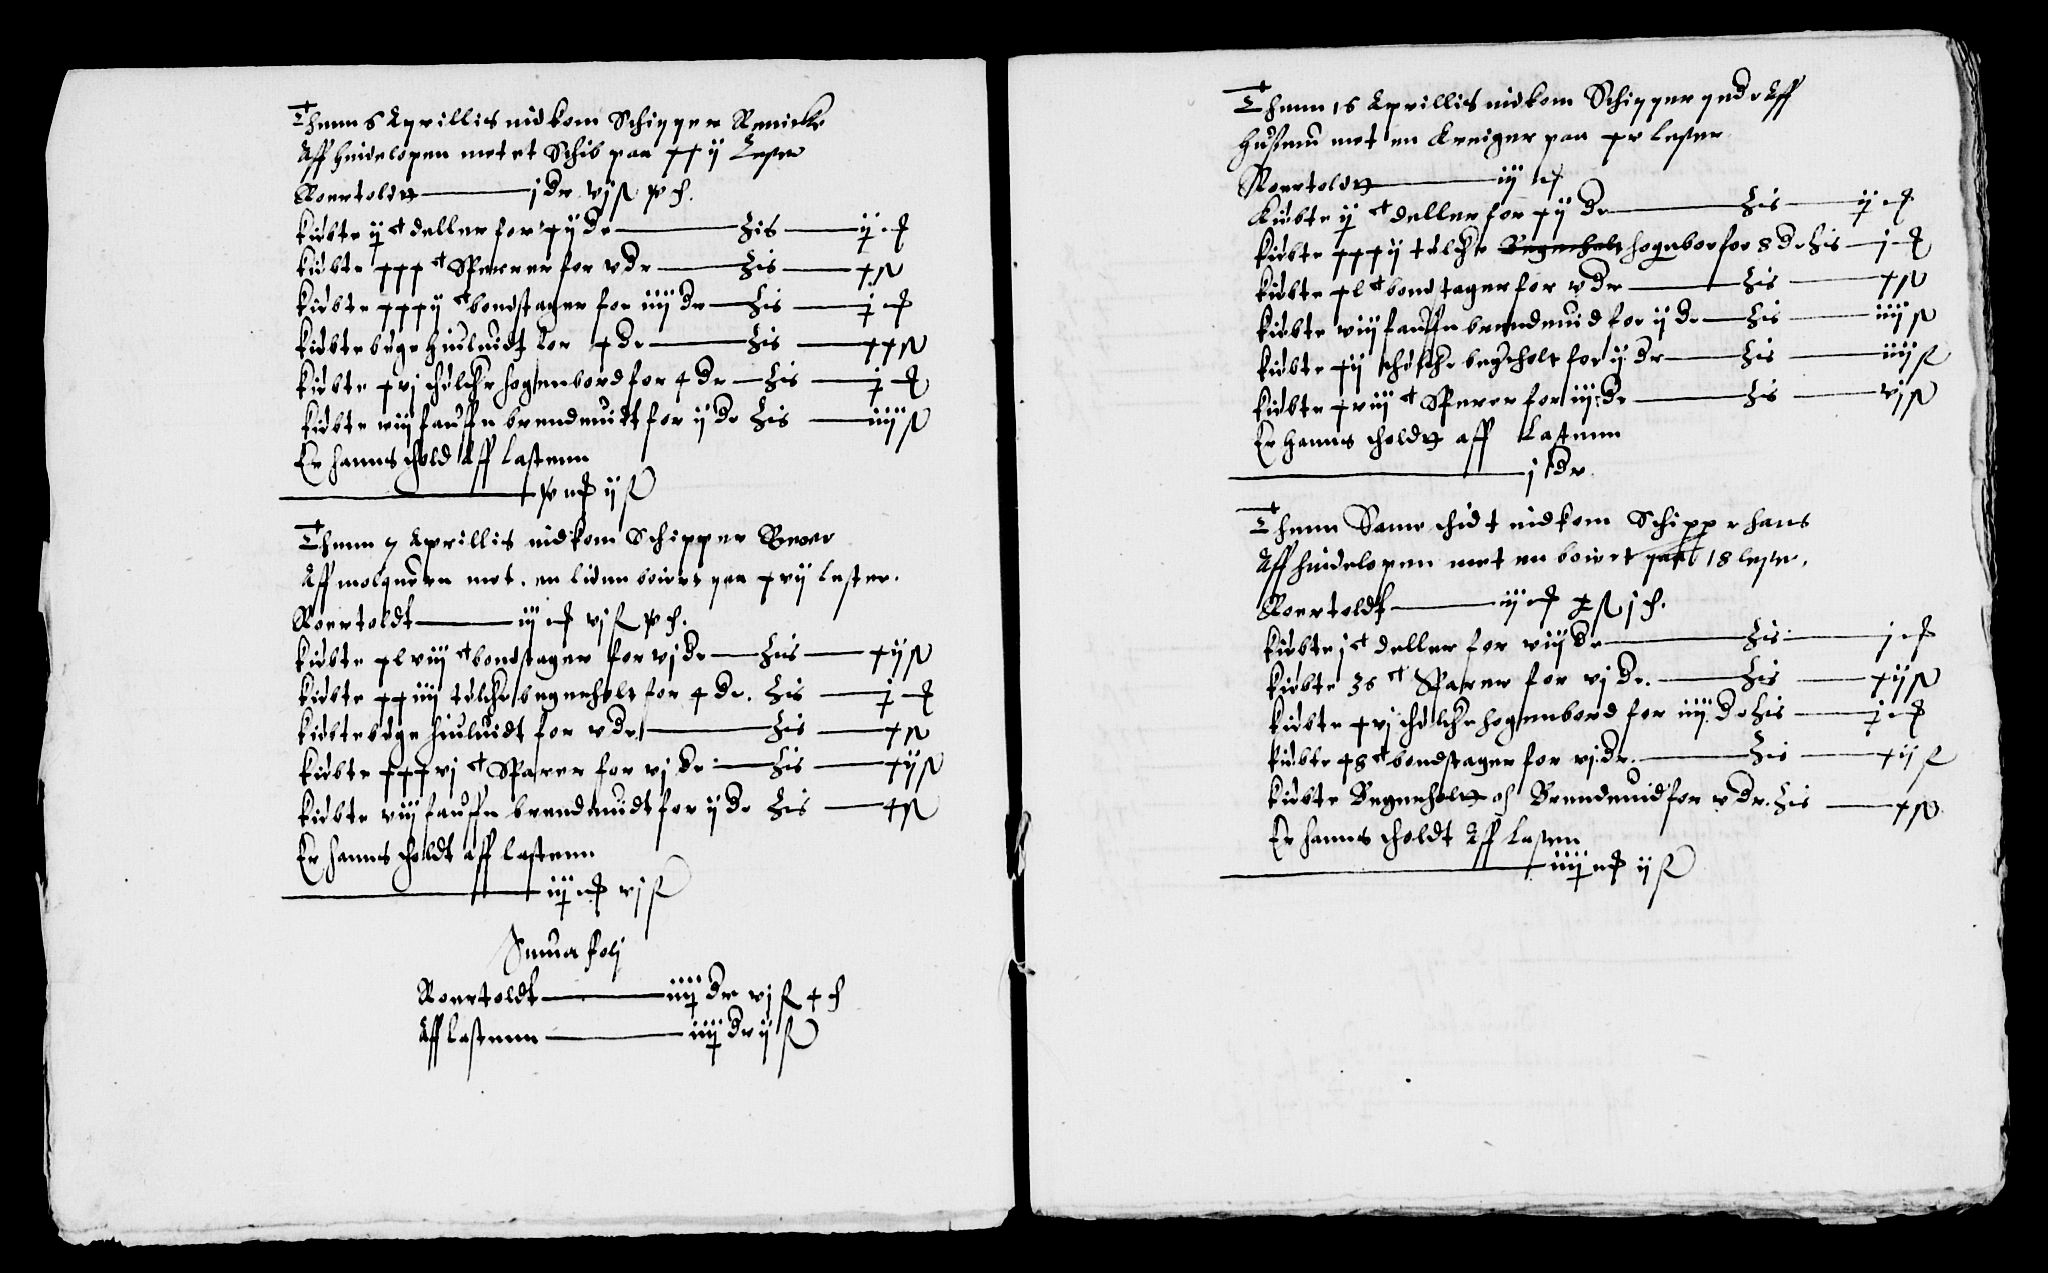 Thenn 6 Aprillis indkom Schipper Reincke
Aff heidelopen met et Schib paa xxij Lester
Roertoldt j dr vj ß
kiøbte ij c deller for xij dr Zis ij
kiøbte xxx c Sparrer for v dr Zis x ß
kiøbte xxxij c bondstager for iiij dr Zis j
kiøbte bøge hiuluidt for x dr Zis xx ß
kiøbte xvj thølcht hogenbord for 4 dr Zis j
kiøbte viij fauffn brendeuidt for ij dr Zis iiij ß
Er hanns thold Aff Lastenn
ij ß
Thenn 7 Aprillis indkom Schipper
Aff molquern met en liden boiert paa xvij Lester.
Roertoldt iij vj ß
kiøbte xlviij c bondstager for vj dr Zis xij ß
kiøbte xxiiij tølcht bøgeholt for 4 dr. Zis j
kiøbte bøge hiuluidt for v dr Zis x ß
kiøbte xxxvj c Sparer for vj dr Zis xij ß
kiøbte viij fauffn brendeuidt for ij dr Zis x ß
Er hanns tholdt aff lastenn
iij vj ß
Suma folj
Roertoldt iiij dr vj ß
Aff lastenn iiij dr ij ß
Thenn 16 Aprillis indkom Schipper Aff
Husenn met en Kreiger paa xv lester
Roertoldt iij
kiøbte ij c deller for xij dr Zis ij
kiøbte xxxij tølcht hogenbor for 8 dr Zis j
kiøbte xl c bondstager for v dr Zis x ß
kiøbte viij fauffn brendeuid for ij dr Zis iiij ß
kiøbte xij thølcht bøgeholt for ij dr Zis iiij ß
kiøbte xviij c Sparer for iij dr Zis vj ß
Er hanns tholdt aff Lastenn
j dr
Thenn Same thidt indkom Schipper hans
Aff heidelopen met en boiert paa 18 leste.
Roertoldt iij x ß
kiøbte j c deller for viij dr Zis j
kiøbte 36 c Sparer for vj dr. Zis xij ß
kiøbte xvj thølcht hogenbord for iiij dr Zis j
kiøbte 48 c bondstager for vj dr. Zis xij ß
kiøbte Bøgeholt och Brendeuid for v dr. Zis x ß
Er hanns tholdt Aff Lasten
iiij ij ß